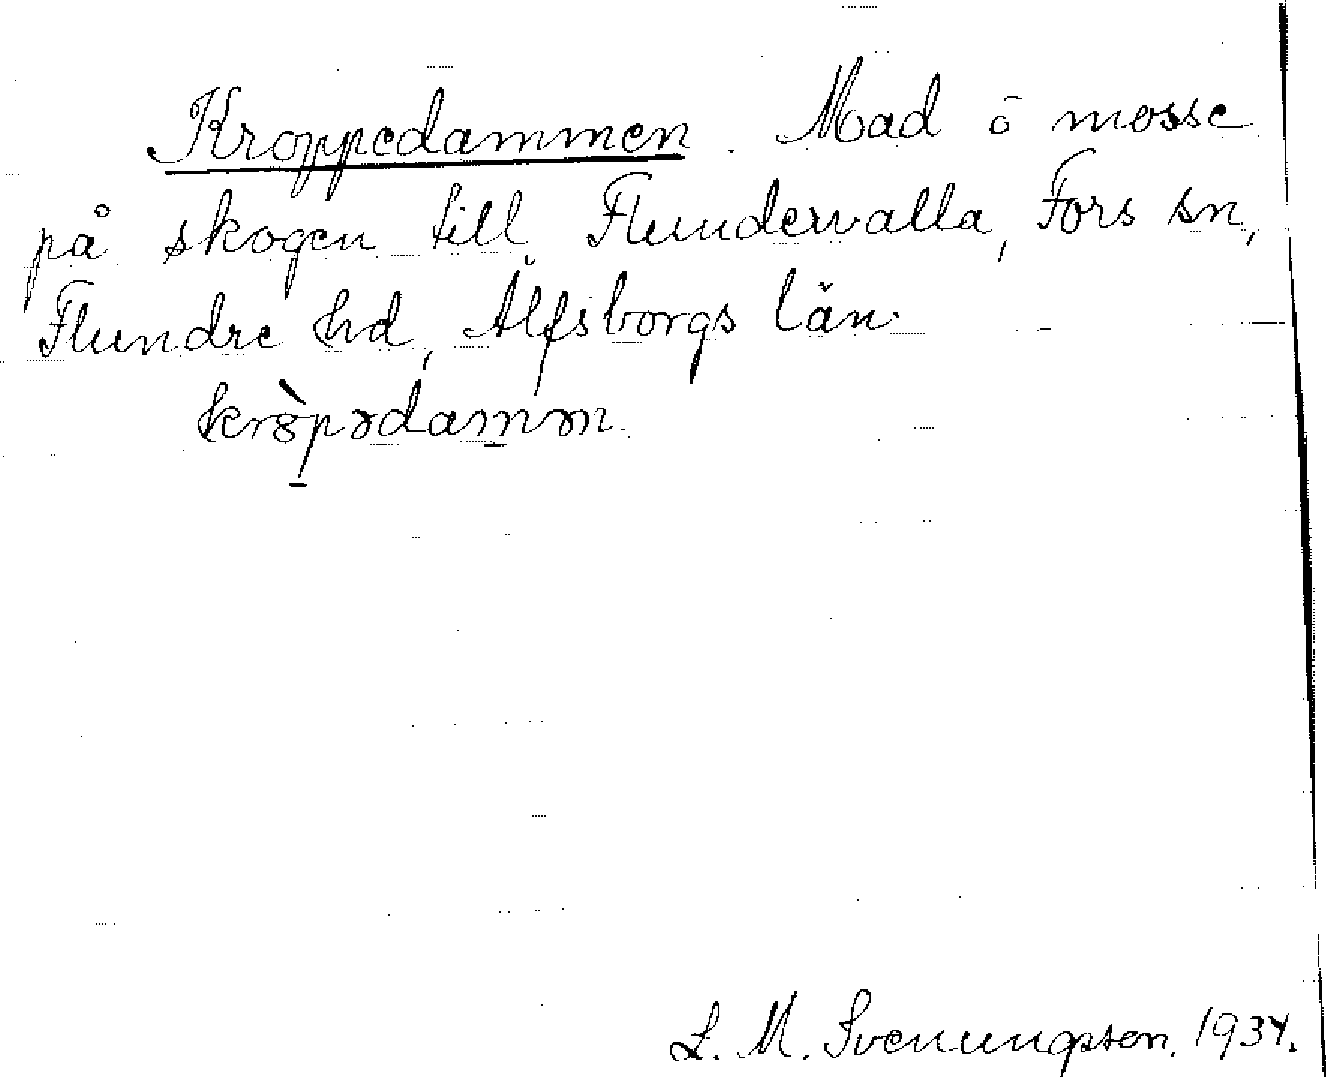 Kroppedammen. Mad ō mosse
på skogen till Flundervalla, Fors sn,
Flundre hd, Älfsborgs län.
L. M. Svenungsson. 1934.